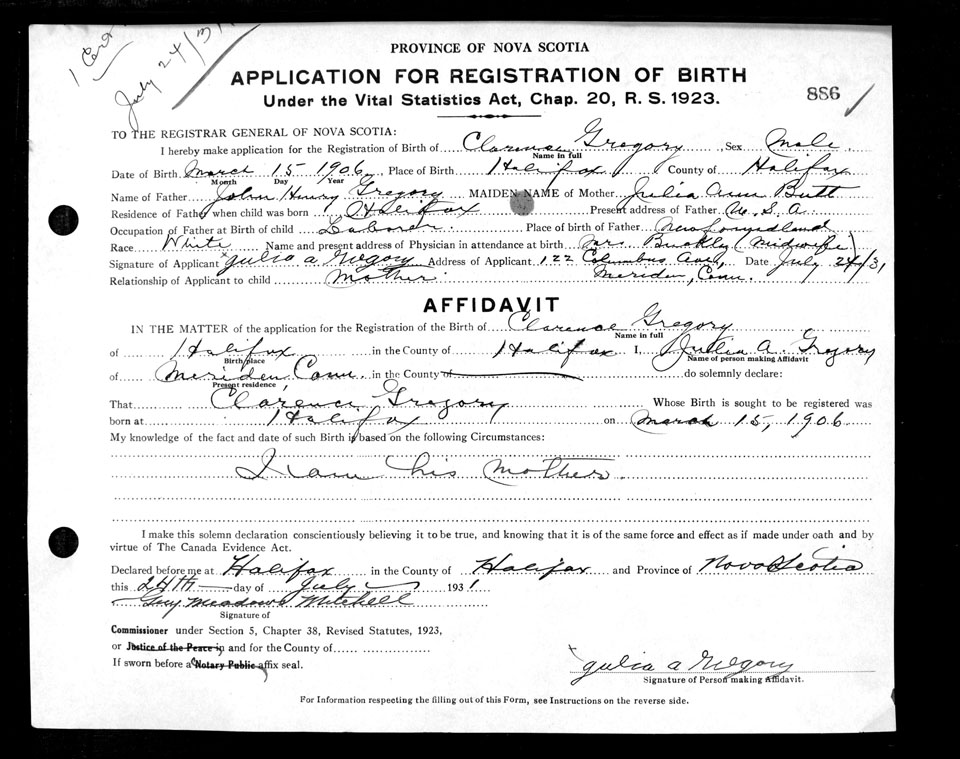 1 Card
July 24/31
PROVINCE OF NOVA SCOTIA
APPLICATION FOR REGISTRATION OF BIRTH
Under the Vital Statistics Act, Chap. 20, R. S. 1923.
886
TO THE REGISTRAR GENERAL OF NOVA SCOTIA:
I hereby make application for the Registration of Birth of Clarence Gregory Sex Male
Name in full
Date of Birth March 15 1906 Place of Birth Halifax County of Halifax
Month Day Year
Name of Father John Henry Gregory MAIDEN NAME of Mother Julia Ann Butt
Residence of Father when child was born Halifax Present address of Father U. S. A.
Occupation of Father at Birth of child Laborer. Place of birth of Father Newfoundland
Race White Name and present address of Physician in attendance at birth Mrs. Buckly (Midwife)
Signature of Applicant Julia a Gregory Address of Applicant 122 Columbus Ave., Date July 24/31
Relationship of Applicant to child Mother Meriden, Conn.
AFFIDAVIT
IN THE MATTER of the application for the Registration of the Birth of Clarence Gregory
Name in full
of Halifax in the County of Halifax I, Julia A. Gregory
Birthplace Name of person making Affidavit
of Meriden, Conn. in the County of do solemnly declare:
Present residence
That Clarence Gregory Whose Birth is sought to be registered was
born at Halifax on March 15, 1906
My knowledge of the fact and date of such Birth is based on the following Circumstances:
I am his Mother.
I make this solemn declaration conscientiously believing it to be true, and knowing that it is of the same force and effect as if made under oath and by
virtue of The Canada Evidence Act.
Declared before me at Halifax in the County of Halifax and Province of Nova Scotia
this 24th day of July 1931
Guy Meadows Mitchell
Signature of
Commissioner under Section 5, Chapter 38, Revised Statutes, 1923,
or Justice of the Peace in and for the County of
If sworn before a Notary Public affix seal.
Julia a Gregory
Signature of Person making Affidavit.
For Information respecting the filling out of this Form, see Instructions on the reverse side.